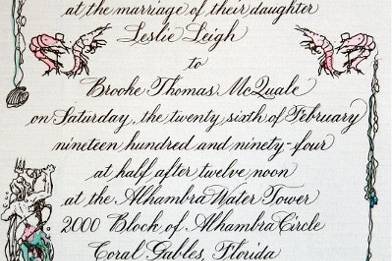 at the marriage of their daughter
Leslie Leigh
to
Brooke Thomas McQuale
on Saturday, the twenty sixth of February
nineteen hundred and ninety-four
at half after twelve noon
at the Alhambra Water Tower
2000 Block of Alhambra Circle
Coral Gables, Florida